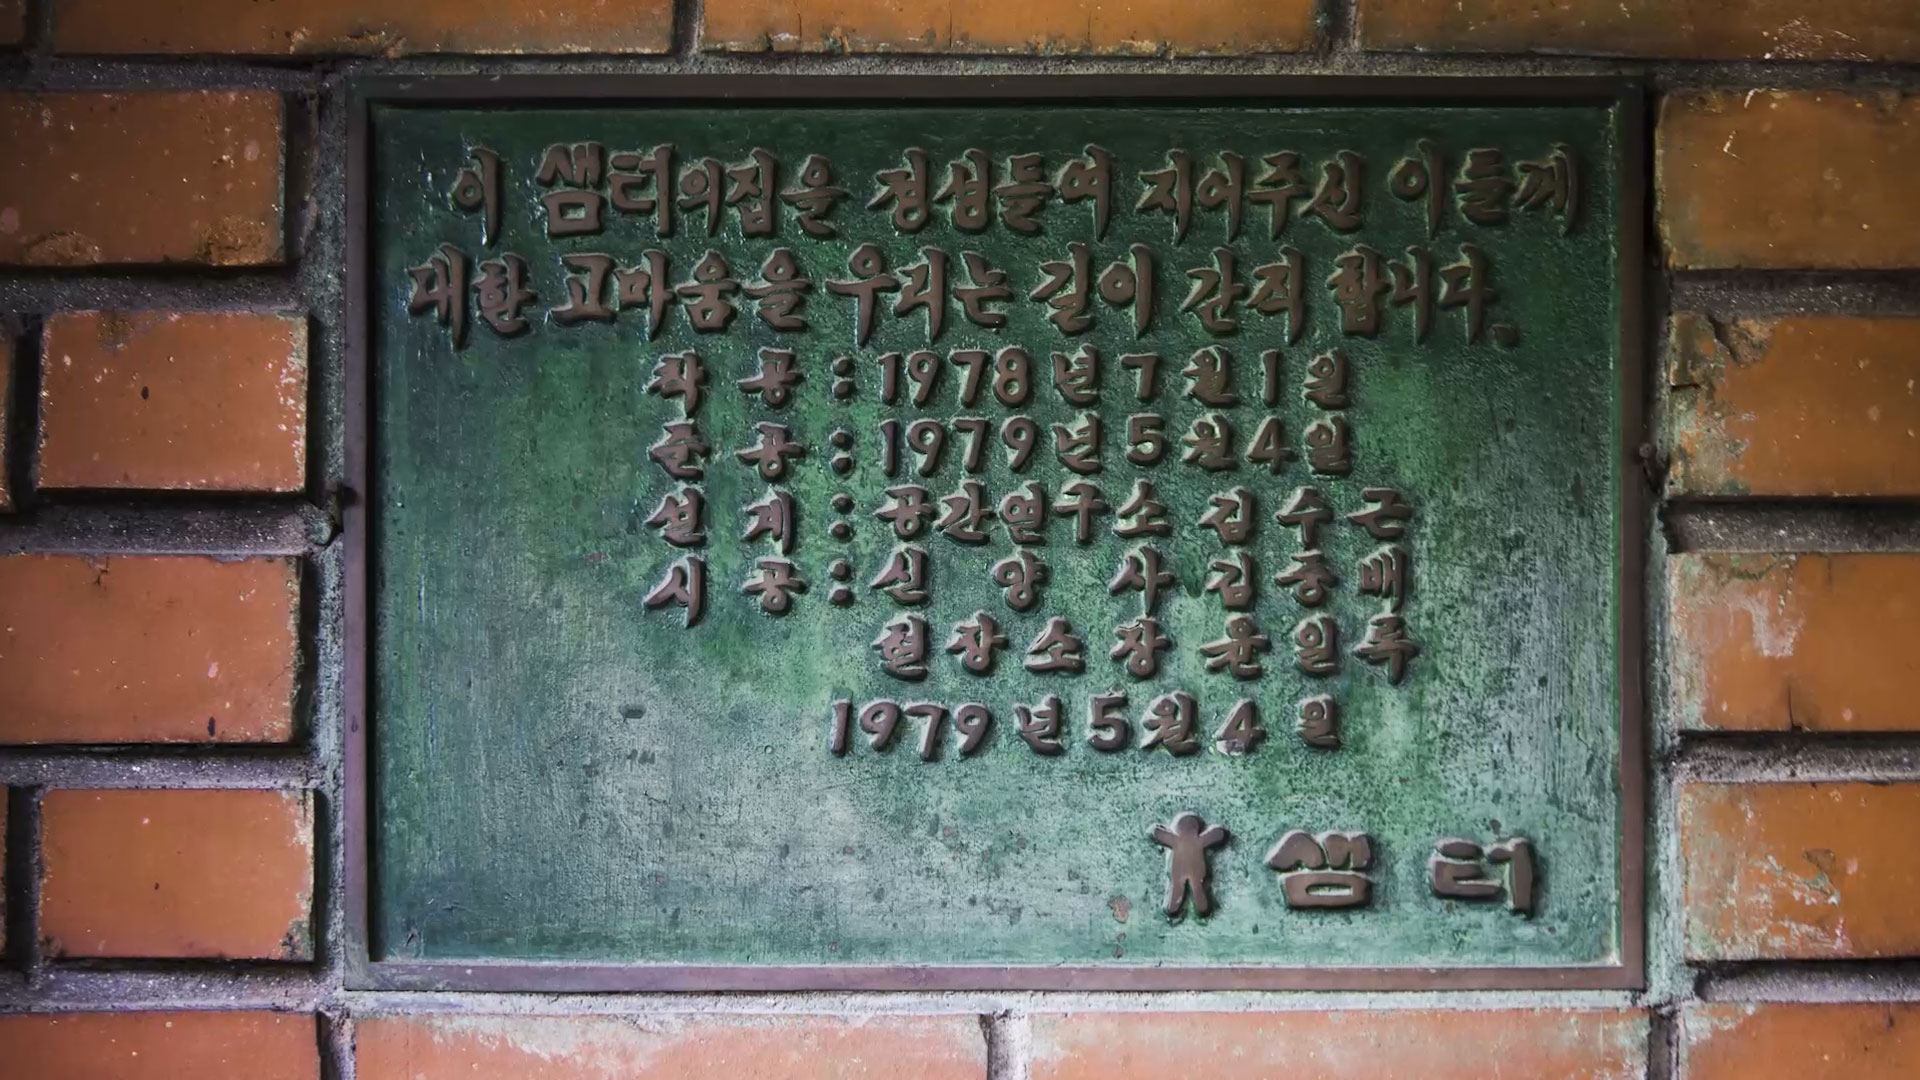 이 샘터의집을 정성들여 지어주신 이들께
대한 고마움을 우리는 길이 간직 합니다.
착 공 : 1978년 7월 1일
준 공 : 1979년 5월 4일
설 계 : 공간연구소 김 수 근
시 공 : 신 양 사 김 중 배
현 장 소 장 윤 일 루
1979년 5월 4일
샘 터